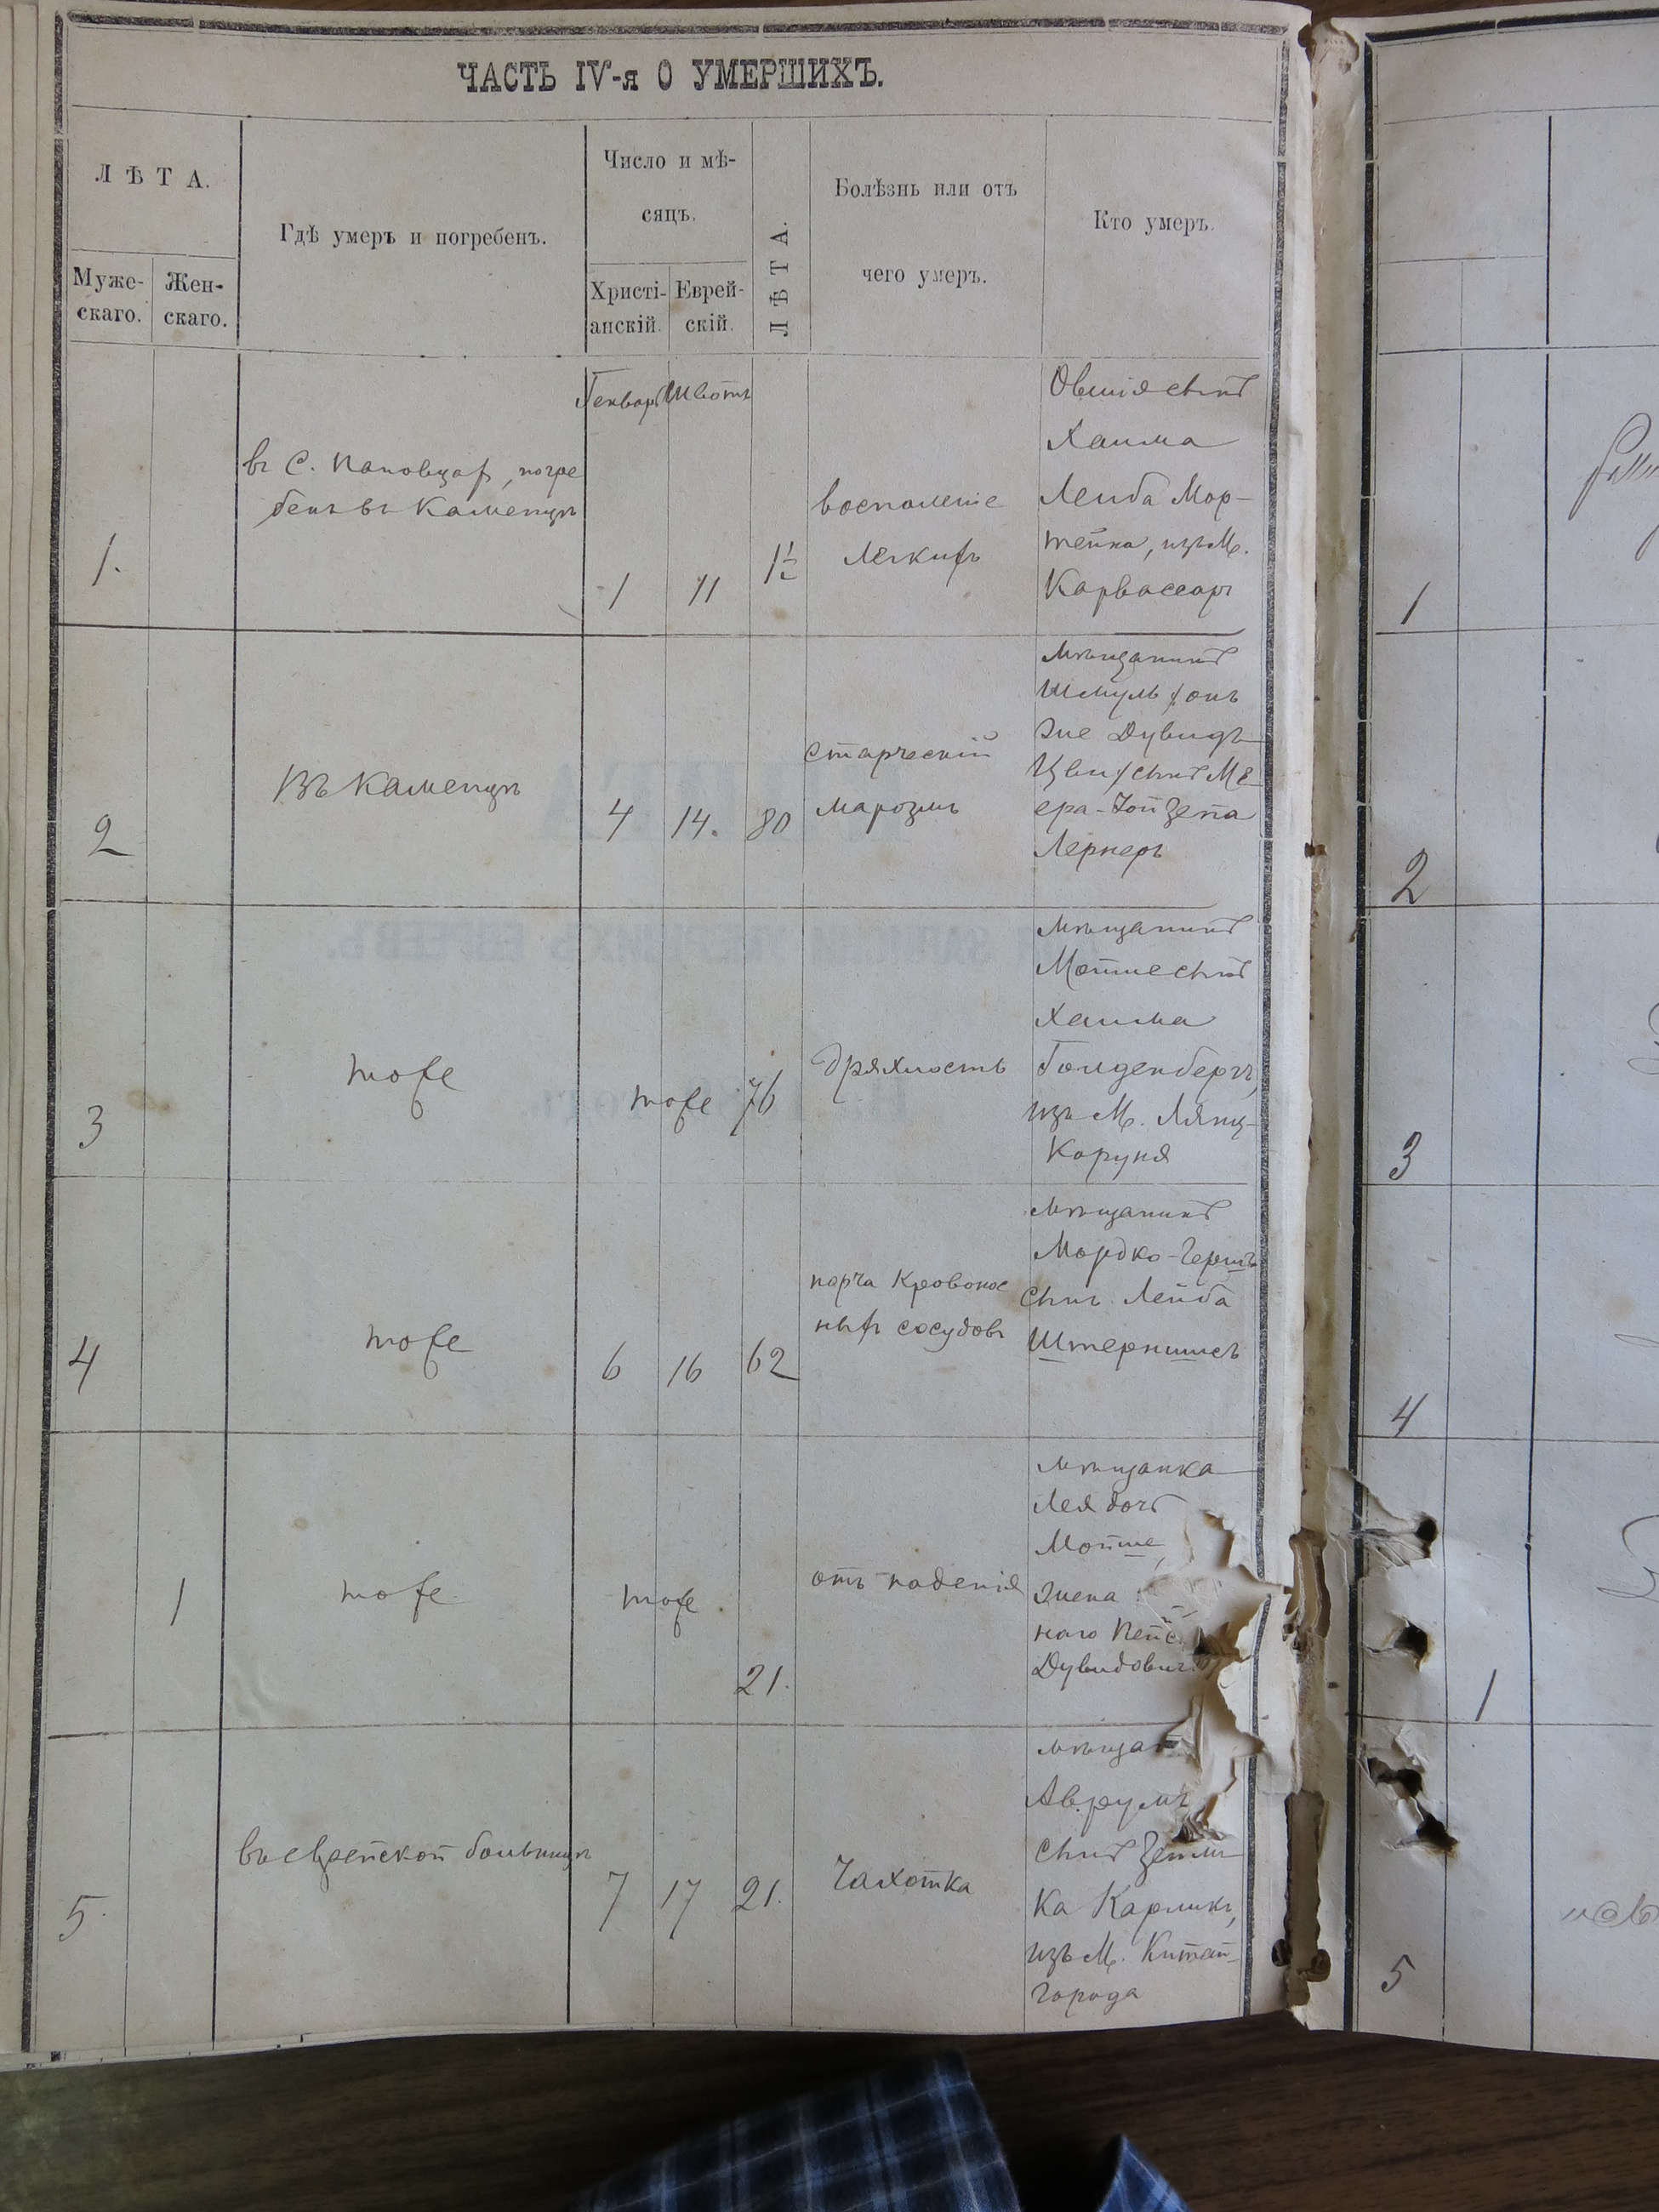 ЧАСТЬ IV-я О УМЕРШИХЪ.
ЛѢТА.
Муже-
скаго.
Жен-
скаго.
Гдѣ умеръ и погребенъ.
Число и мѣ-
сяцъ.
Христі-
анскій.
Еврей-
скій.
ЛѢТА.
Болѣзнь или отъ
чего умеръ.
Кто умеръ.
1.
въ С. Пановцахъ, погре
бенъ въ Каменцѣ
Генваръ
Шватъ
1
11
1½
воспаленіе
легкихъ
Овшія сынъ
Хаима
Лейба Мор-
тейка, изъ М.
Карвассаръ
1
2
Въ Каменцѣ
4
14.
80
старческій
маразмъ
мѣщанинъ
Шмуль / онъ
же Дувидъ
Цви / сынъ Ме
ера-Іойзепа
Лернеръ
2
3
тоже
тоже
76
дряхлость
мѣщанинъ
Мотше сынъ
Хаима
Голденбергъ,
изъ М. Лянц-
коруня
3
4
тоже
6
16
62
порча кровонос
ныхъ сосудовъ
мѣщанинъ
Мордко-Гершъ
сынъ Лейба
Штерншисъ
4
1
тоже
тоже
21.
отъ паденія
мѣщанка
Лея дочь
Мотше,
жена
наго Пейс
Дувидович
1
5.
въ еврейской больницѣ
7
17
21.
Чахотка
мѣщан
Аврумъ
сынъ Зейли-
ка Карликъ,
изъ М. Китай-
города
5